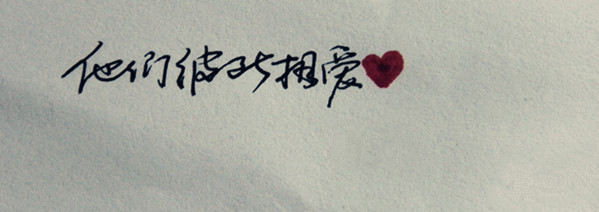 他们彼此相爱